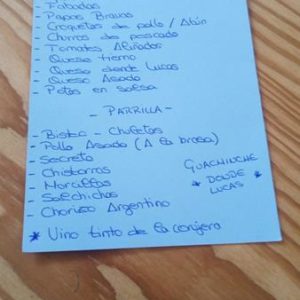 - Fabadas
- Papas Bravas
- Croquetas de pollo / Atún
- Churros de pescado
- Tomates Aliñados
- Queso tierno
- Queso donde Lucas
- Queso Asado
- Potas en salsa
- PARRILLA -
- Bistec - Chuletas
- Pollo Asado (A la brasa)
- Secreto
- Chistorras
- Morcillas
- Salchichas
- Chorizo Argentino
GUACHINCHE
* DONDE *
LUCAS
* Vino tinto de la conjera